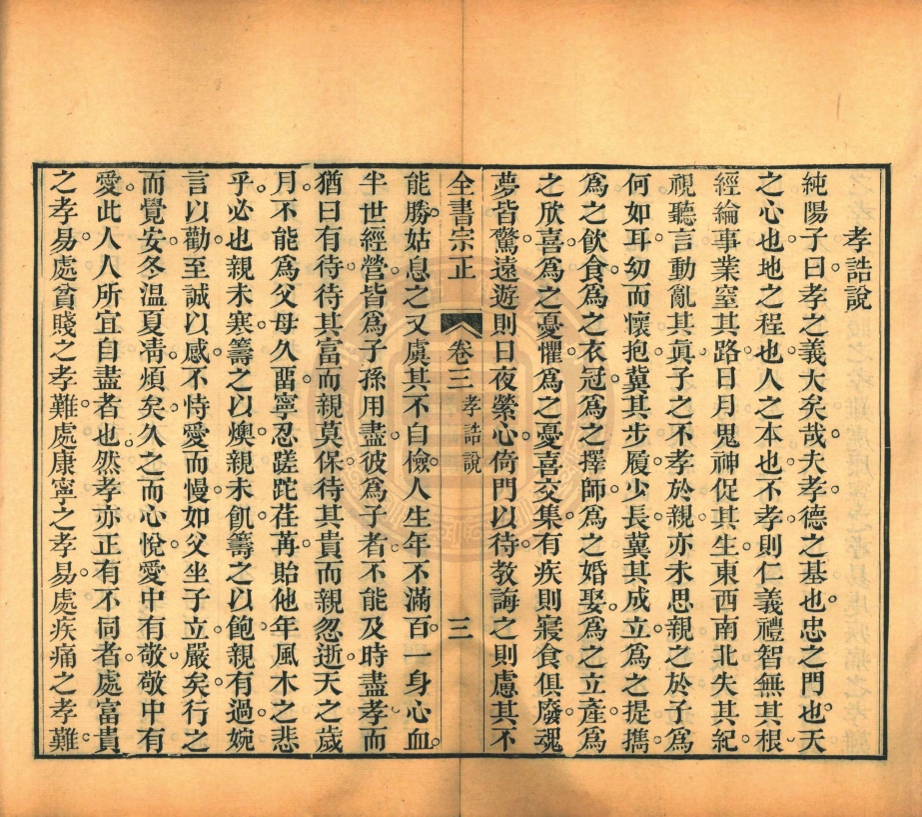 孝誥說
純陽子曰孝之義大矣哉夫孝德之基也忠之門也天
之心也地之程也人之本也不孝則仁義禮智無其根
經綸事業窒其路日月鬼神促其生東西南北失其紀
視聽言動亂其眞子之不孝於親亦未思親之於子爲
何如耳幼而懷抱冀其步履少長冀其成立爲之提攜
爲之飲食爲之衣冠爲之擇師爲之婚娶爲之立產爲
之欣喜爲之憂懼爲之憂喜交集有疾則寢食俱廢魂
夢皆驚遠遊則日夜縈心倚門以待教誨之則慮其不
全書宗正
卷三
孝誥說
三
能勝姑息之又虞其不自儉人生年不滿百一身心血
半世經營皆爲子孫用盡彼爲子者不能及時盡孝而
猶曰有待待其富而親莫保待其貴而親忽逝天之歲
月不能爲父母久畱寧忍蹉跎荏苒貽他年風木之悲
乎必也親未寒籌之以燠親未飢籌之以飽親有過婉
言以勸至誠以感不恃愛而慢如父坐子立嚴矣行之
而覺安冬溫夏凊煩矣久之而心悅愛中有敬敬中有
愛此人人所宜自盡者也然孝亦正有不同者處富貴
之孝易處貧賤之孝難處康寧之孝易處疾痛之孝難